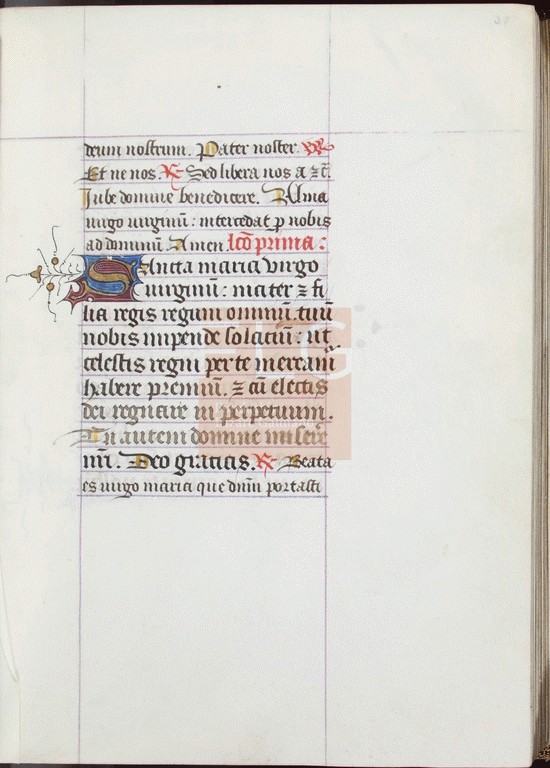 deum nostrum. Pater noster. V.
Et ne nos. R. Sed libera nos a ⁊ c̄.
Iube domne benedicere. Alma
virgo virginū: intercedat ꝓ nobis
ad dominū. Amen. lcō prima:
Sancta maria virgo
virginum: mater ⁊ fi
lia regis regum omniū. tuū
nobis impende solaciū: ut
celestis regni per te mereamᷣ
habere premiū. ⁊ cū electis
dei regnare in perpetuum.
Tu autem domine misere
nr̄i. Deo gracias. R. Beata
es virgo maria que dn̄m portasti